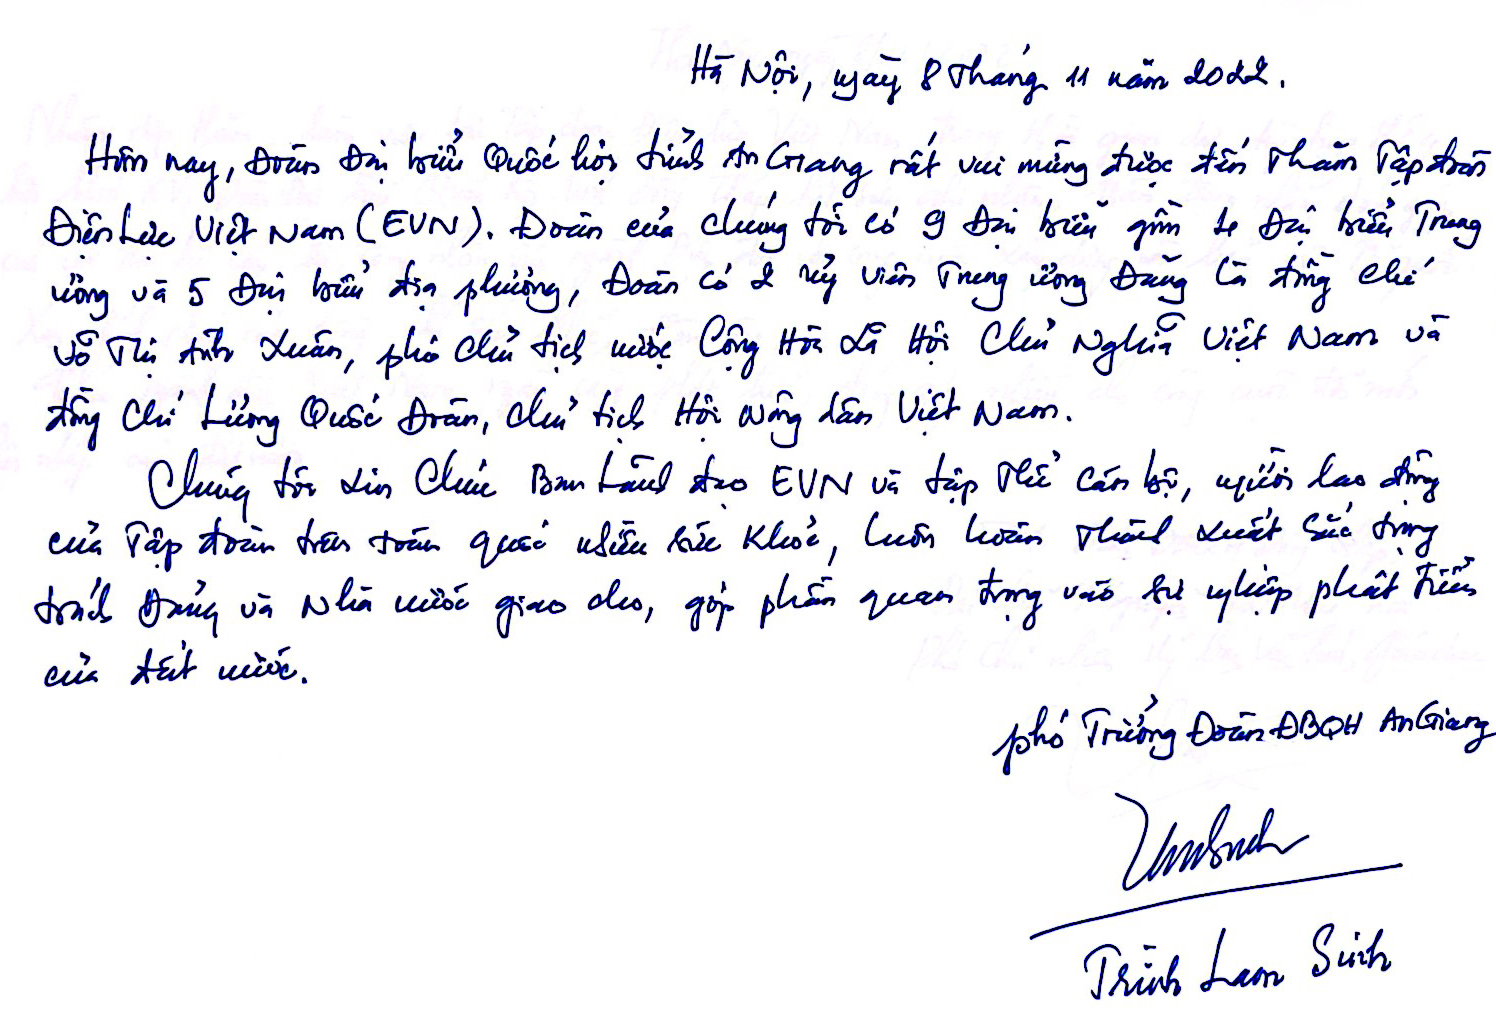 Hà Nội, ngày 8 tháng 11 năm 2022.
Hôm nay, Đoàn Đại biểu Quốc hội tỉnh An Giang rất vui mừng được đến Thăm Tập đoàn
Điện Lực Việt Nam (EVN). Đoàn của chúng tôi có 9 Đại biểu gồm 4 Đại biểu Trung
ương và 5 Đại biểu địa phương, Đoàn có 2 Uỷ viên Trung ương Đảng là đồng chí
Võ Thị Ánh Xuân, phó Chủ tịch nước Cộng Hòa Xã Hội Chủ Nghĩa Việt Nam và
đồng chí Lương Quốc Đoàn, Chủ tịch Hội Nông dân Việt Nam.
Chúng tôi xin Chúc Ban Lãnh đạo EVN và tập thể cán bộ, người lao động
của Tập đoàn trên toàn quốc nhiều sức khoẻ, luôn hoàn thành xuất sắc trọng
trách Đảng và Nhà nước giao cho, góp phần quan trọng vào sự nghiệp phát triển
của đất nước.
phó Trưởng Đoàn ĐBQH An Giang
Trình Lam Sinh